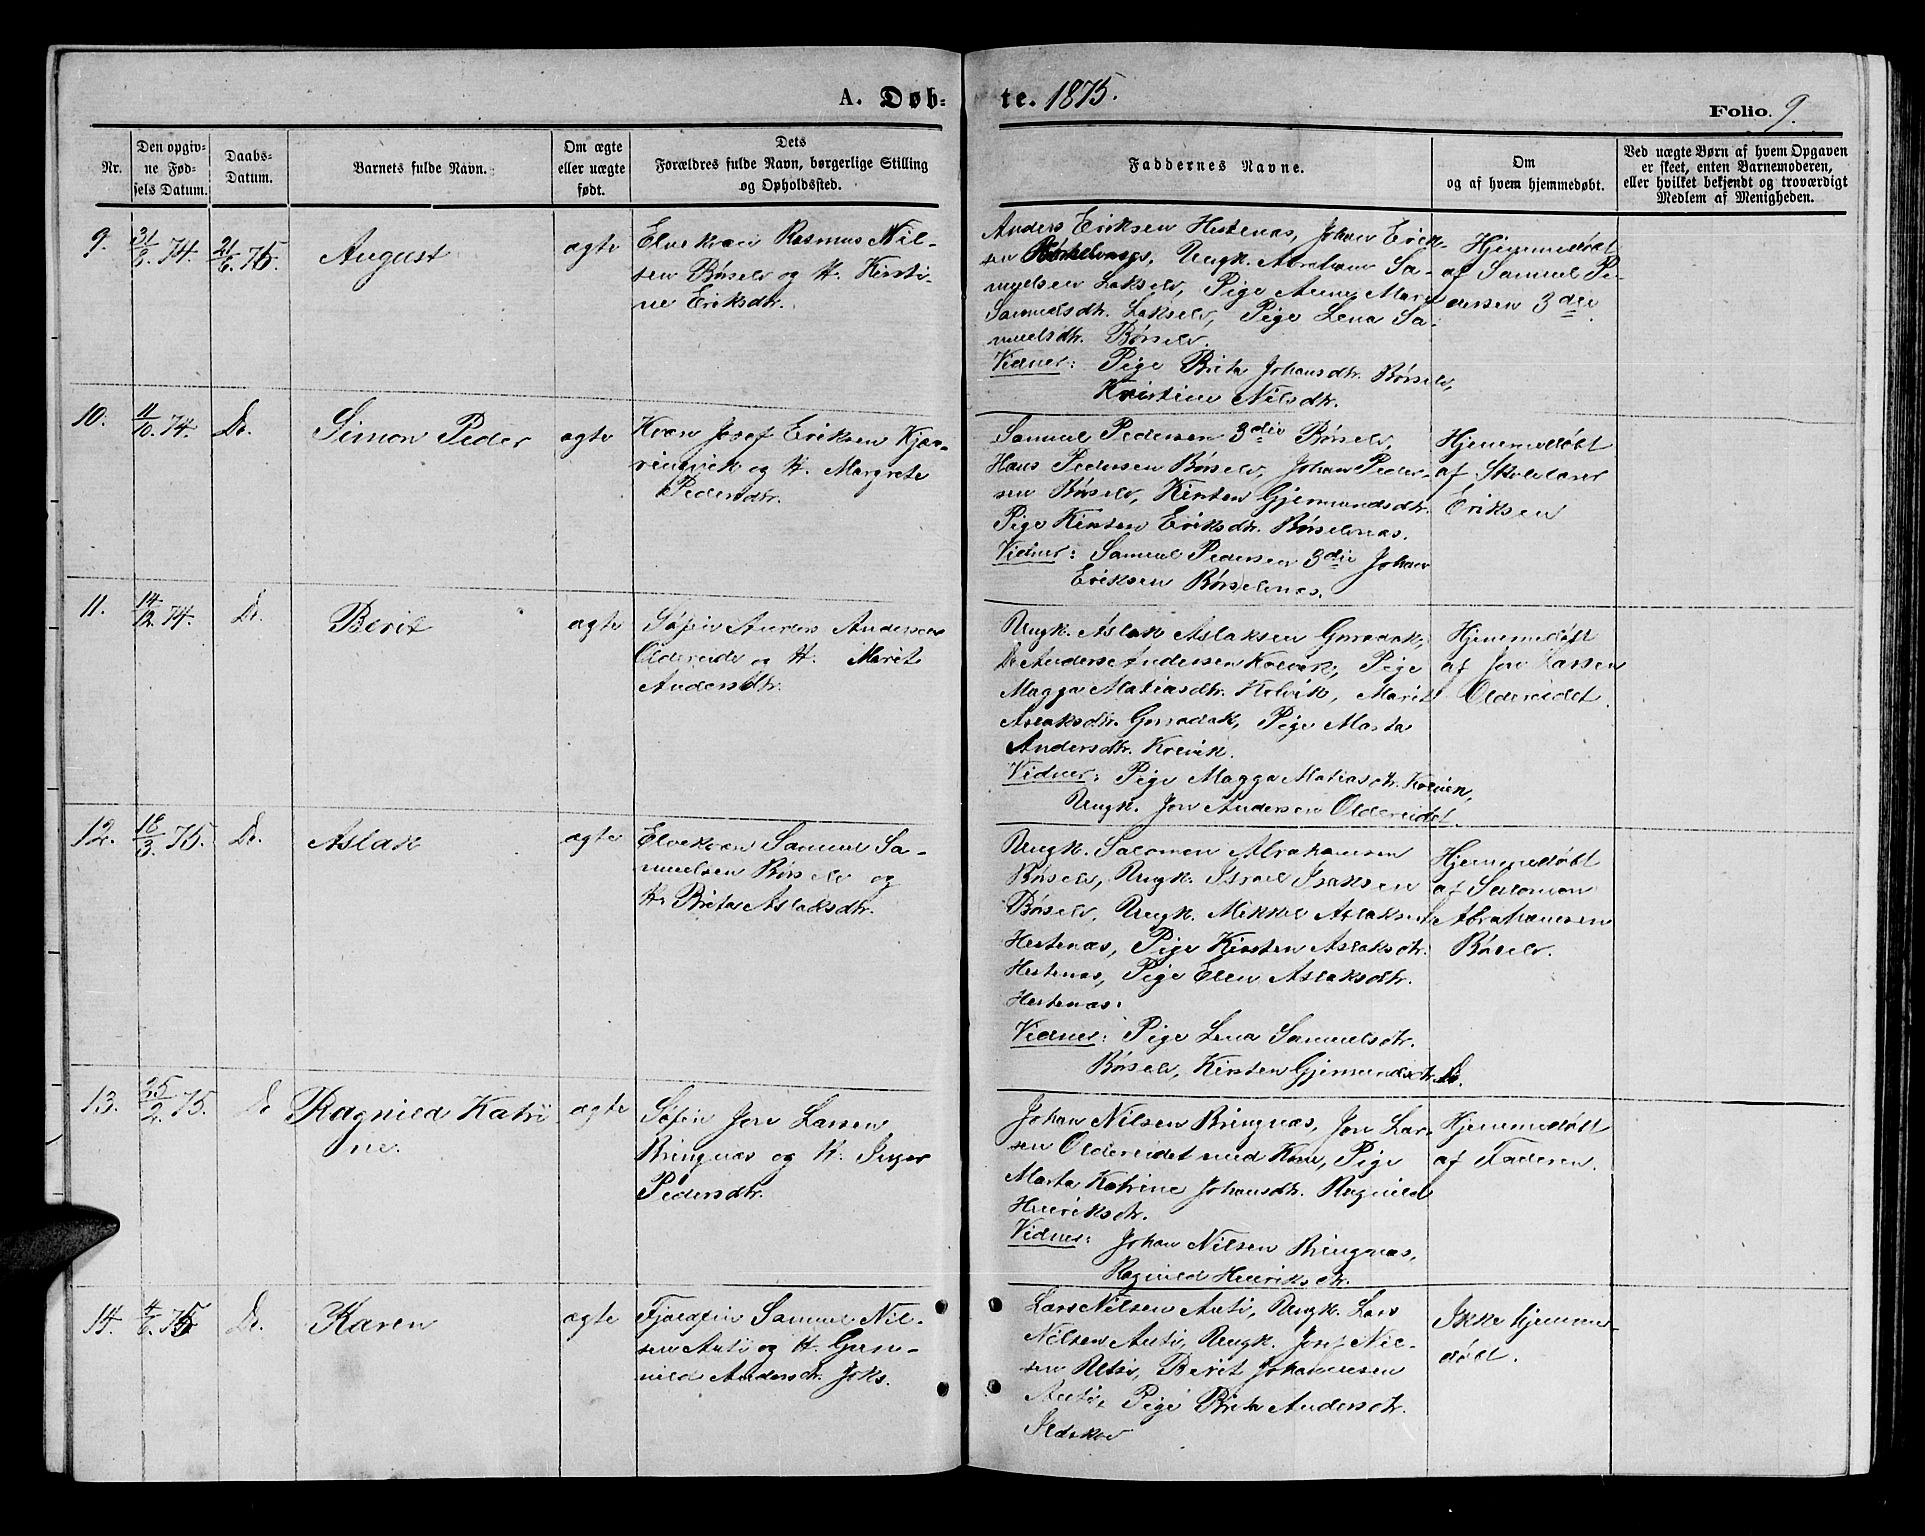 A. Døb-
te. 1875.
Folio. 9.
Nr.
Den opgiv-
ne Fød-
sels Datum.
Daabs-
Datum.
Barnets fulde Navn.
Om ægte
eller uægte
født.
Dets
Forældres fulde Navn, borgerlige Stilling
og Opholdssted.
Faddernes Navne.
Om
og af hvem hjemmedøbt.
Ved uægte Børn af hvem Opgaven
er skeet, enten Barnemoderen,
eller hvilket bekjendt og troværdigt
Medlem af Menigheden.
9. 31/3 74. 21/6 75. August ægte
Elvekvæn Rasmus Nil-
sen Børselv og H. Kirsti-
ne Eriksdtr.
Anders Eriksen Hestenæs, Johan Erik-
sen Børselvnæs, Ungk. Abraham Sa-
muelsen Lakselv, Pige Anne Maret
Samuelsdtr. Lakselv, Pige Lena Sa-
muelsdtr. Børselv.
Vidner: Pige Brita Johansdtr. Børselv,
Kristine Nilsdtr.
Hjemmedøbt
af Samuel Pe-
dersen 3die.
10. 11/10 74. Do. Simon Peder ægte
Kvæn Josef Eriksen Kjær-
ringvik og H. Margrete
Pedersdtr.
Samuel Pedersen 3die Børselv,
Hans Pedersen Børselv, Johan Peder-
sen Børselv, Kirsten Gjermundsdtr.
Pige Kirsten Eriksdtr. Børselvnæs.
Vidner: Samuel Pedersen 3die Johan
Eriksen Børselvnæs.
Hjemmedøbt
af Skolelærer
Eriksen
11. 14/12 74. Do. Berit ægte
Søfin Anders Andersen
Oldereide og H. Marit
Andersdtr.
Ungk. Aslak Aslaksen Gorradak,
Do Anders Andersen Kolvik, Pige
Magga Matiasdtr. Kolvik, Marit
Aslaksdtr. Gorradak, Pige Marta
Andersdtr. Kolvik.
Vidner: Pige Magga Matiasdtr. Kolvik,
Ungk. Jon Andersen Oldereidet.
Hjemmedøbt
af Jon Larsen
Oldereidet.
12. 18/3 75. Do. Aslak ægte
Elvekvæn Samuel Sa-
muelsen Børselv og
H. Brita Aslaksdtr.
Ungk. Salomon Abrahamsen
Børselv, Ungk. Israel Isaksen
Børselv, Ungk. Mikkel Aslaksen
Hestenæs, Pige Kirsten Aslaksdtr.
Hestenæs, Pige Elen Aslaksdtr.
Hestenæs.
Vidner: Pige Lena Samuelsdtr.
Børselv, Kirsten Gjermundsdtr. Do.
Hjemmedøbt
af Salomon
Abrahamsen
Børselv.
13. 25/2 75. Do Ragnild Katri
ne. ægte
Søfin Jon Larsen
Bringnæs og H. Inger
Pedersdtr.
Johan Nilsen Bringnæs, Jon Lar-
sen Oldereidet med Kone, Pige
Marta Katrine Johansdtr. Ragnild
Henriksdtr.
Vidner: Johan Nilsen Bringnæs,
Ragnild Henriksdtr.
Hjemmedøbt
af Faderen.
14. 4/6 75 Do. Karen ægte
Fjeldfin Samuel Nil-
sen Anti og H. Gun-
nild Andersdtr. Joks.
Lars Nilsen Anti, Ungk. Lars
Nilsen Anti, Ungk. Josef Nil-
sen Utsi, Berit Johannesen
Anti, Pige Brita Andersdtr.
Ikke hjemme-
døbt.